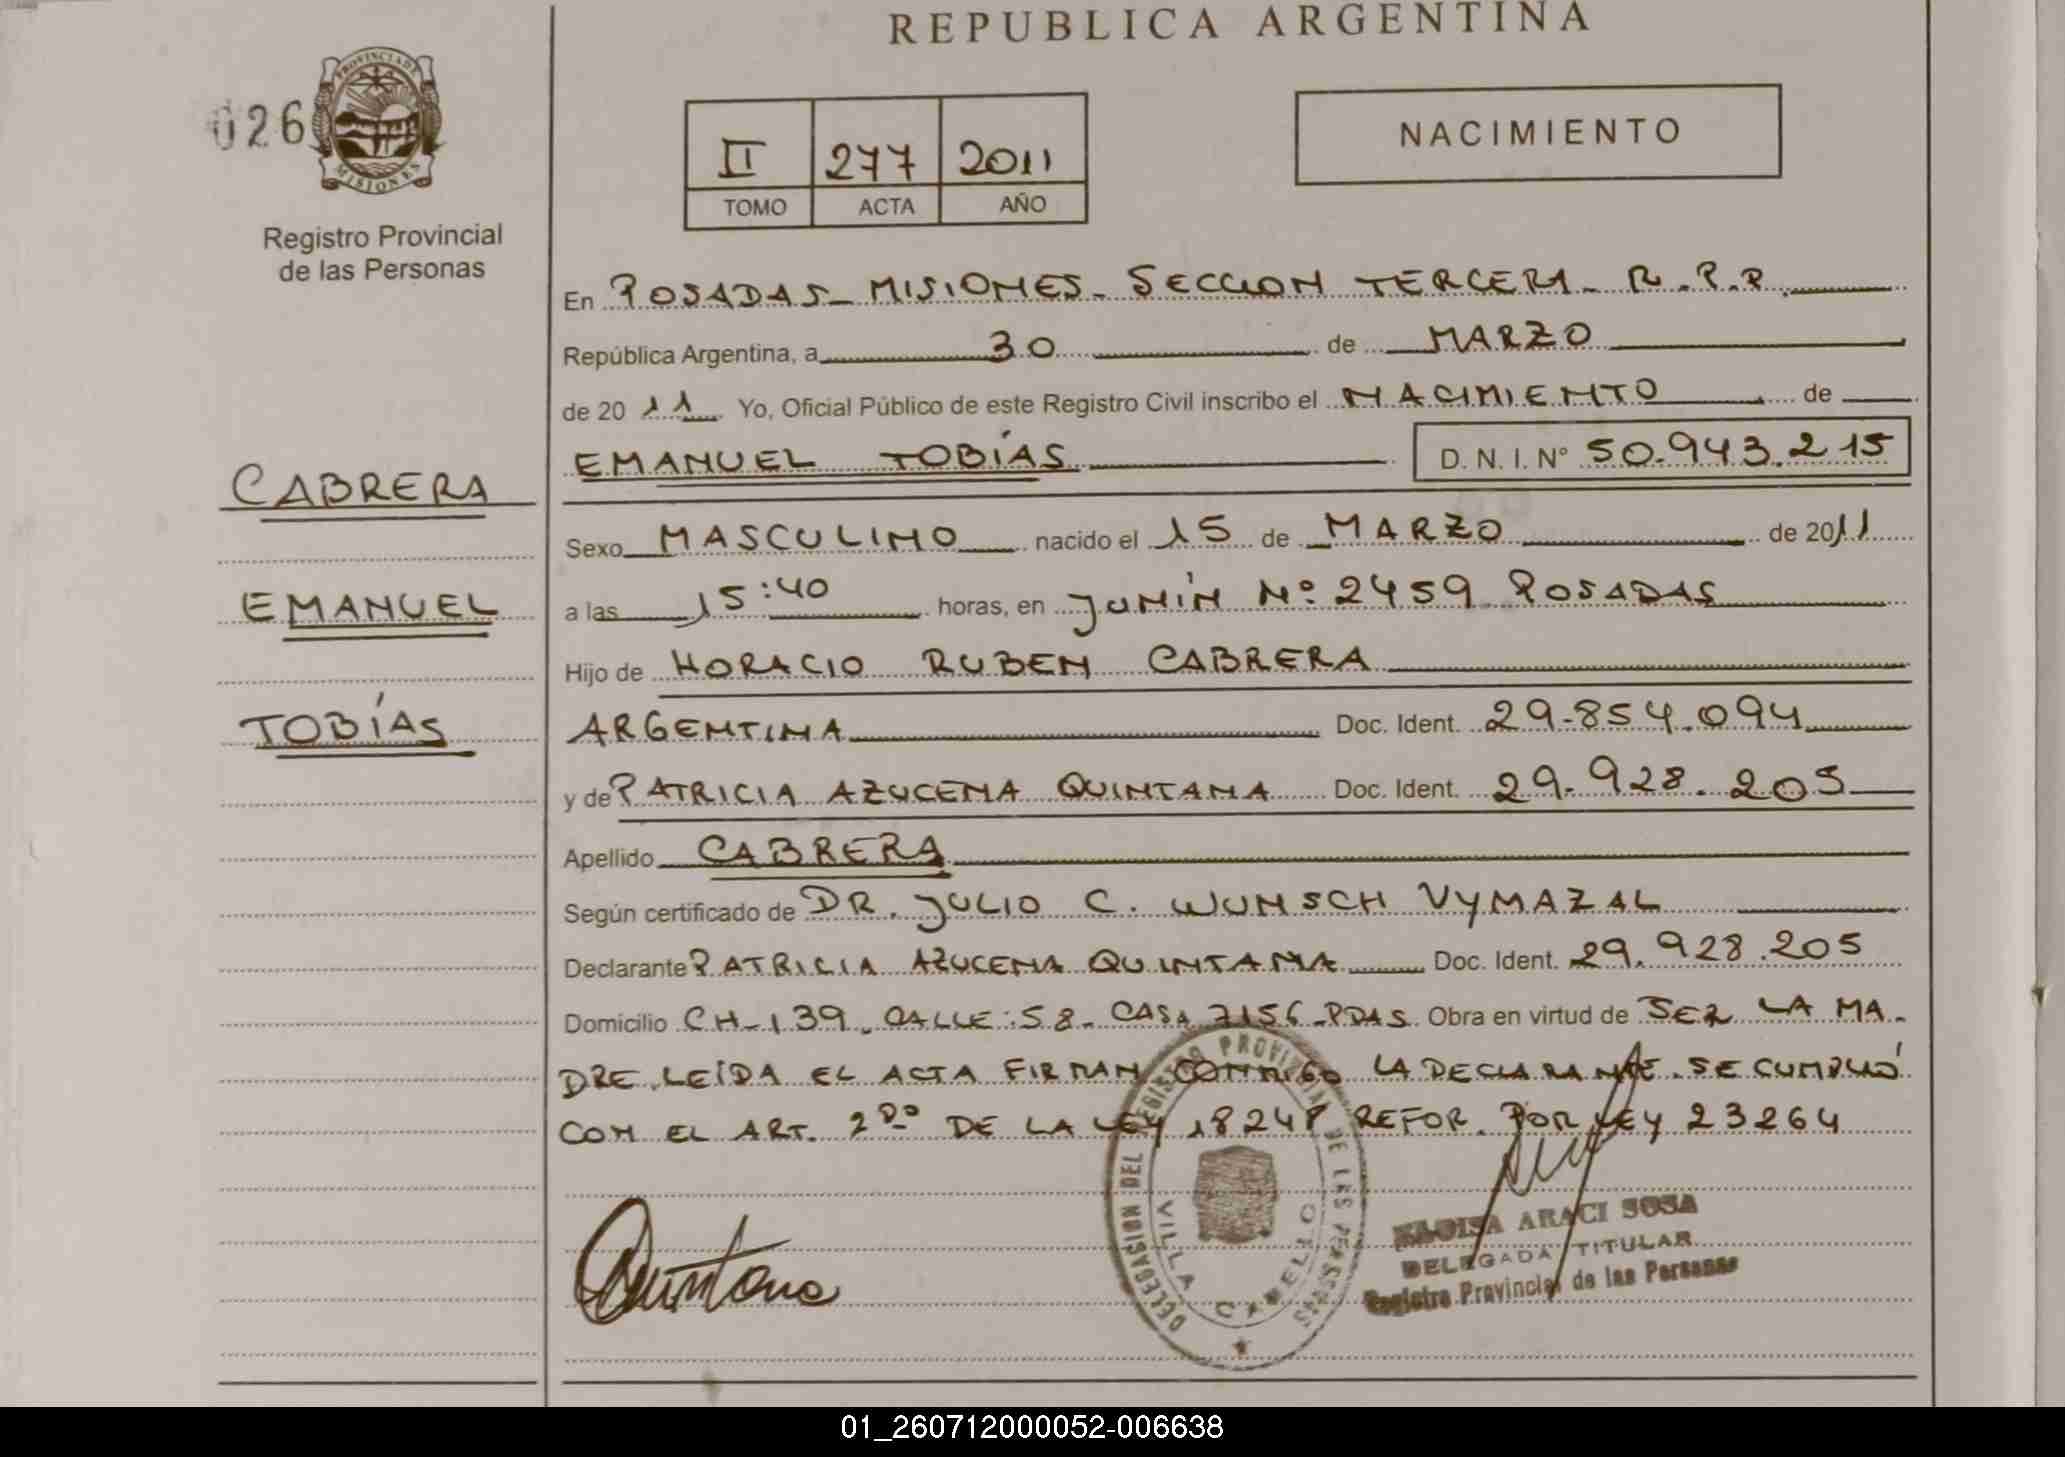 REPUBLICA ARGENTINA
026
PROVINCIA DE
MISIONES
Registro Provincial
de las Personas
II 277 2011
TOMO ACTA AÑO
NACIMIENTO
En POSADAS - MISIONES - SECCION TERCERA - R.P.P.
República Argentina, a 30 de MARZO
de 2011 Yo, Oficial Público de este Registro Civil inscribo el NACIMIENTO de
EMANUEL TOBÍAS D. N. I. N° 50.943.215
CABRERA
EMANUEL
TOBÍAS
Sexo MASCULINO nacido el 15 de MARZO de 2011
a las 15:40 horas, en JUNÍN Nº 2459 POSADAS
Hijo de HORACIO RUBEN CABRERA
ARGENTINA Doc. Ident. 29.854.094
y de PATRICIA AZUCENA QUINTANA Doc. Ident. 29.928.205
Apellido CABRERA
Según certificado de DR. JULIO C. WUNSCH VYMAZAL
Declarante PATRICIA AZUCENA QUINTANA Doc. Ident. 29.928.205
Domicilio CH-139. CALLE:58- CASA 7156-PDAS. Obra en virtud de SER LA MA-
DRE. LEÍDA EL ACTA FIRMAN CONMIGO LA DECLARANTE. SE CUMPLIÓ
CON EL ART. 2DO DE LA LEY 18248 REFOR. POR LEY 23264
Quintana
DELEGACION DEL REGISTRO PROVINCIAL DE LAS PERSONAS
VILLA CABELLO
ELOISA ARACI SOSA
DELEGADA TITULAR
Registro Provincial de las Personas
01_260712000052-006638